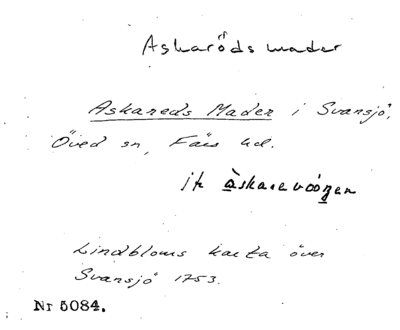 Askaröds mader
Askareds Mader i Svansjö,
Öved sn, Färs hd.
jfr
Lindbloms karta över
Svansjö 1753.
Nr 5084.